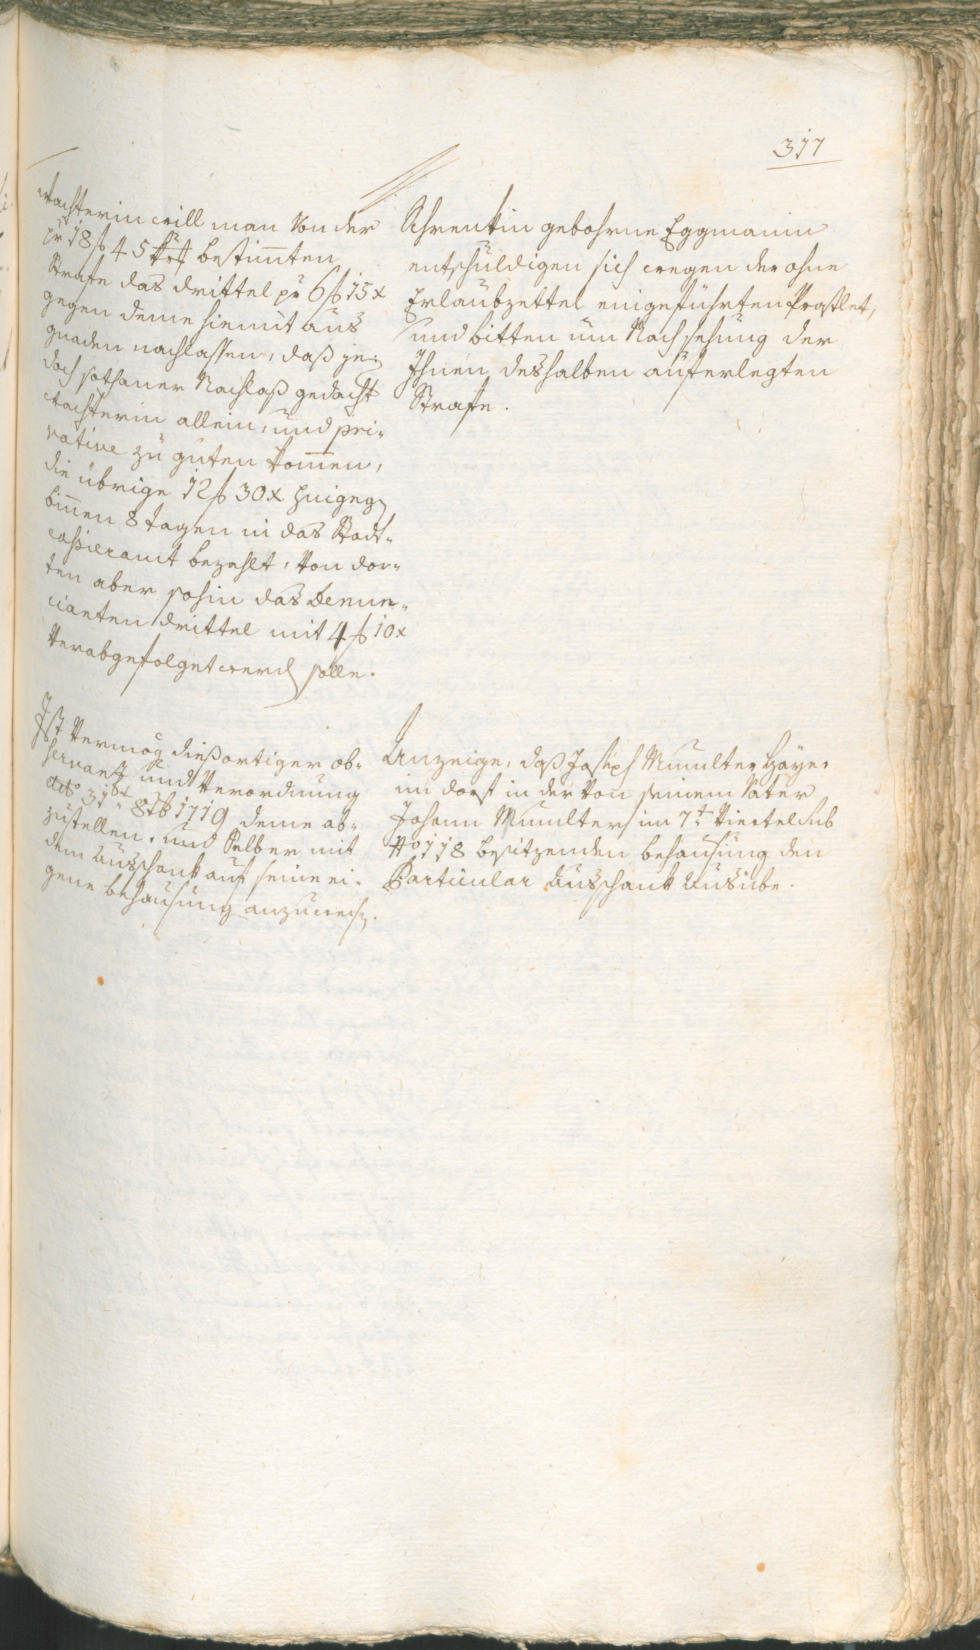 317
wachterin will man von der
pr 18 f 45 xr bestimten
Strafe das drittel pr 6 f 15 x
gegen deme hiemit aus
gnaden nachlassen, daß je-
doch sothaner Nachlaß gedacht
wachterin allein, und pri-
vative zu guten komen,
die übrige 12 f 30 x hingeg
binnen 8 tagen in das Stadt-
cassieramt bezahlt, von dor-
ten aber sohin das denun-
cianten drittel mit 4 f 10 x
verabgefolget werd solle.
Schrenkin gebohrne Eggmanin
entschuldigen sich wegen der ohne
Erlaubzettel eingeführten
und bitten um Nachsehung der
Ihnen deshalben auferlegten
Strafe.
Ist vermög diesortiger ob-
servanz und Verordnung
dtto 31 8tb 1719 deme ab-
zustellen, und selber mit
dem ausschank auf seine ei-
gene behausung anzuweis.
Anzeige, daß Joseph Munlter
im dorf in der von seinem Vater
Johann Munlter im 7t Viertel sub
No 118 besitzenden behausung den
Particular ausschank ausübe.